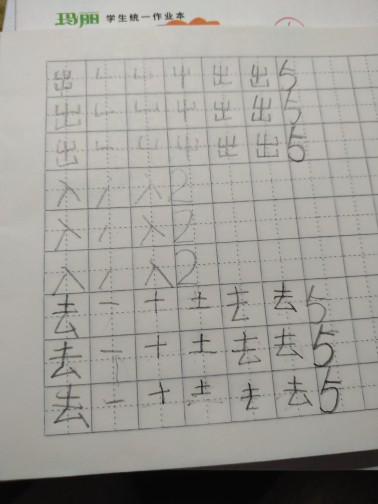 玛丽 学生统一作业本
出 屮 出 出 5
出 屮 出 出 5
出 屮 出 出 5
入 丿 入 2
入 丿 入 2
入 丿 入 2
去 一 十 土 去 去 5
去 一 十 土 去 去 5
去 一 十 土 去 去 5